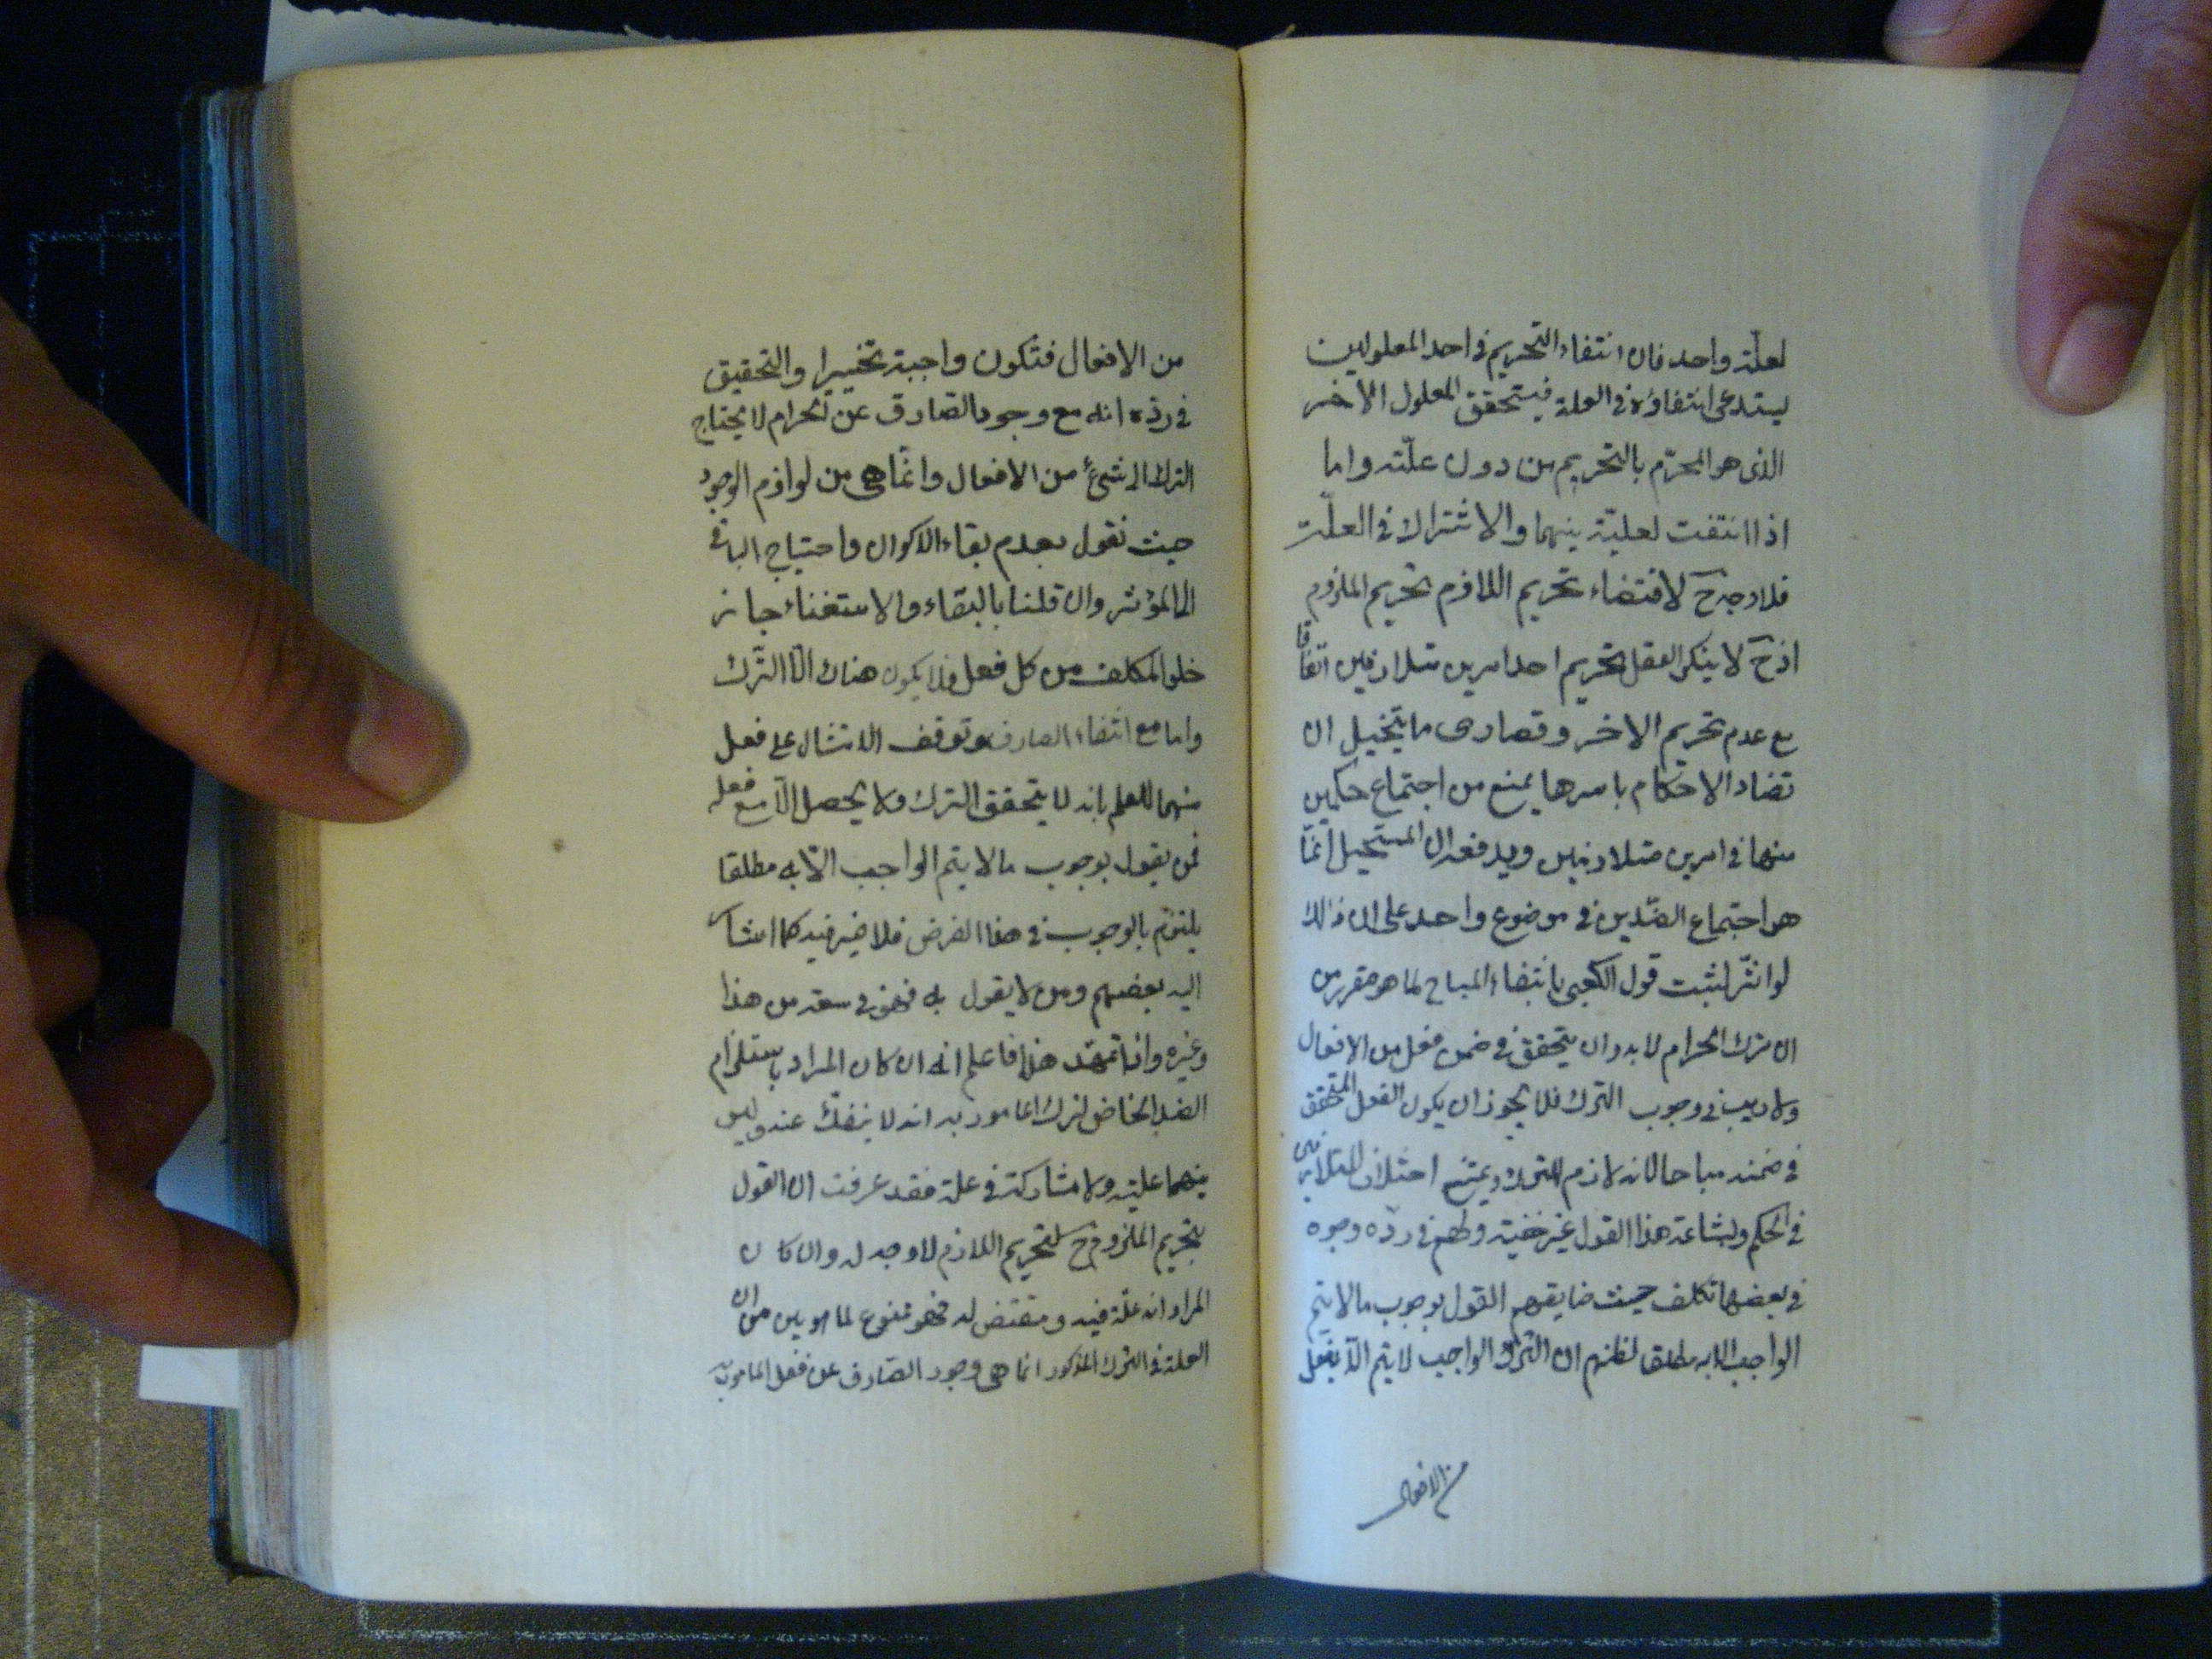 لعلّة واحدة فان انتفاء التحريم فى احد المعلولين
يستدعى انتفاؤه فى العلة فيتحقق المعلول الاخر
الذى هو المحرّم بالتحريم من دون علّته واما
اذا انتفت لعليّة بينهما والاشتراك فى العلّة
فلا وجه ح لاقتضاء تحريم اللازم تحريم الملزوم
اذ ح لا ينكر العقل تحريم احد امرين متلازمين اتفاقا
مع عدم تحريم الاخر وقصارى ما يتخيل ان
تضاد الاحكام باسرها يمنع من اجتماع حكمين
منها فى امرين متلازمين ويدفعه ان المستحيل انّما
هو اجتماع الضّدين فى موضوع واحد على ان ذلك
لو اثّر لثبت قول الكعبى بانتفاء المباح لما هو مقرر من
ان ترك الحرام لا بد وان يتحقق فى ضمن فعل من الافعال
ولا ريب فى وجوب الترك فلا يجوز ان يكون الفعل المتحقق
فى ضمنه مباحا لانه لازم للترك ويمتنع اختلاف المتلازمين
فى الحكم وبشاعة هذا القول غير خفيّة ولهم فى ردّه وجوه
فى بعضها تكلف حيث ضايقهم القول بوجوب ما لا يتم
الواجب الا به مطلقا لظنهم ان الترك الواجب لا يتم الّا بفعل
من الافعال
من الافعال فتكون واجبة تخييرا والتحقيق
فى ردّه انه مع وجود الصّارف عن الحرام لا يحتاج
الترك الى شئ من الافعال وانّما هى من لوازم الوجود
حيث نقول بعدم بقاء الاكوان واحتياج الباقى
الى المؤثر وان قلنا بالبقاء والاستغناء جاز
خلو المكلف من كل فعل فلا يكون هناك الّا التّرك
واما مع انتفاء الصارف وتوقف الامتثال على فعل
منهما للعلم بانه لا يتحقق الترك ولا يحصل الّا مع فعله
فمن يقول بوجوب ما لا يتم الواجب الّا به مطلقا
يلتزم بالوجوب فى هذا الفرض فلا ضير فيه كما اشار
اليه بعضهم ومن لا يقول به فهو فى سعة من هذا
وغيره واذا تمهّد هذا فاعلم انه ان كان المراد باستلزام
الضد الخاص لترك المامور به انه لا ينفكّ عنه وليس
بينهما عليّة ولا مشاركة فى علة فقد عرفت ان القول
بتحريم الملزوم ح لتحريم اللازم لا وجه له وان كان
المراد انه علّة فيه ومقتض له فهو ممنوع لما هو بين من ان
العلة فى الترك المذكور انما هى وجود الصّارف عن فعل المامور به